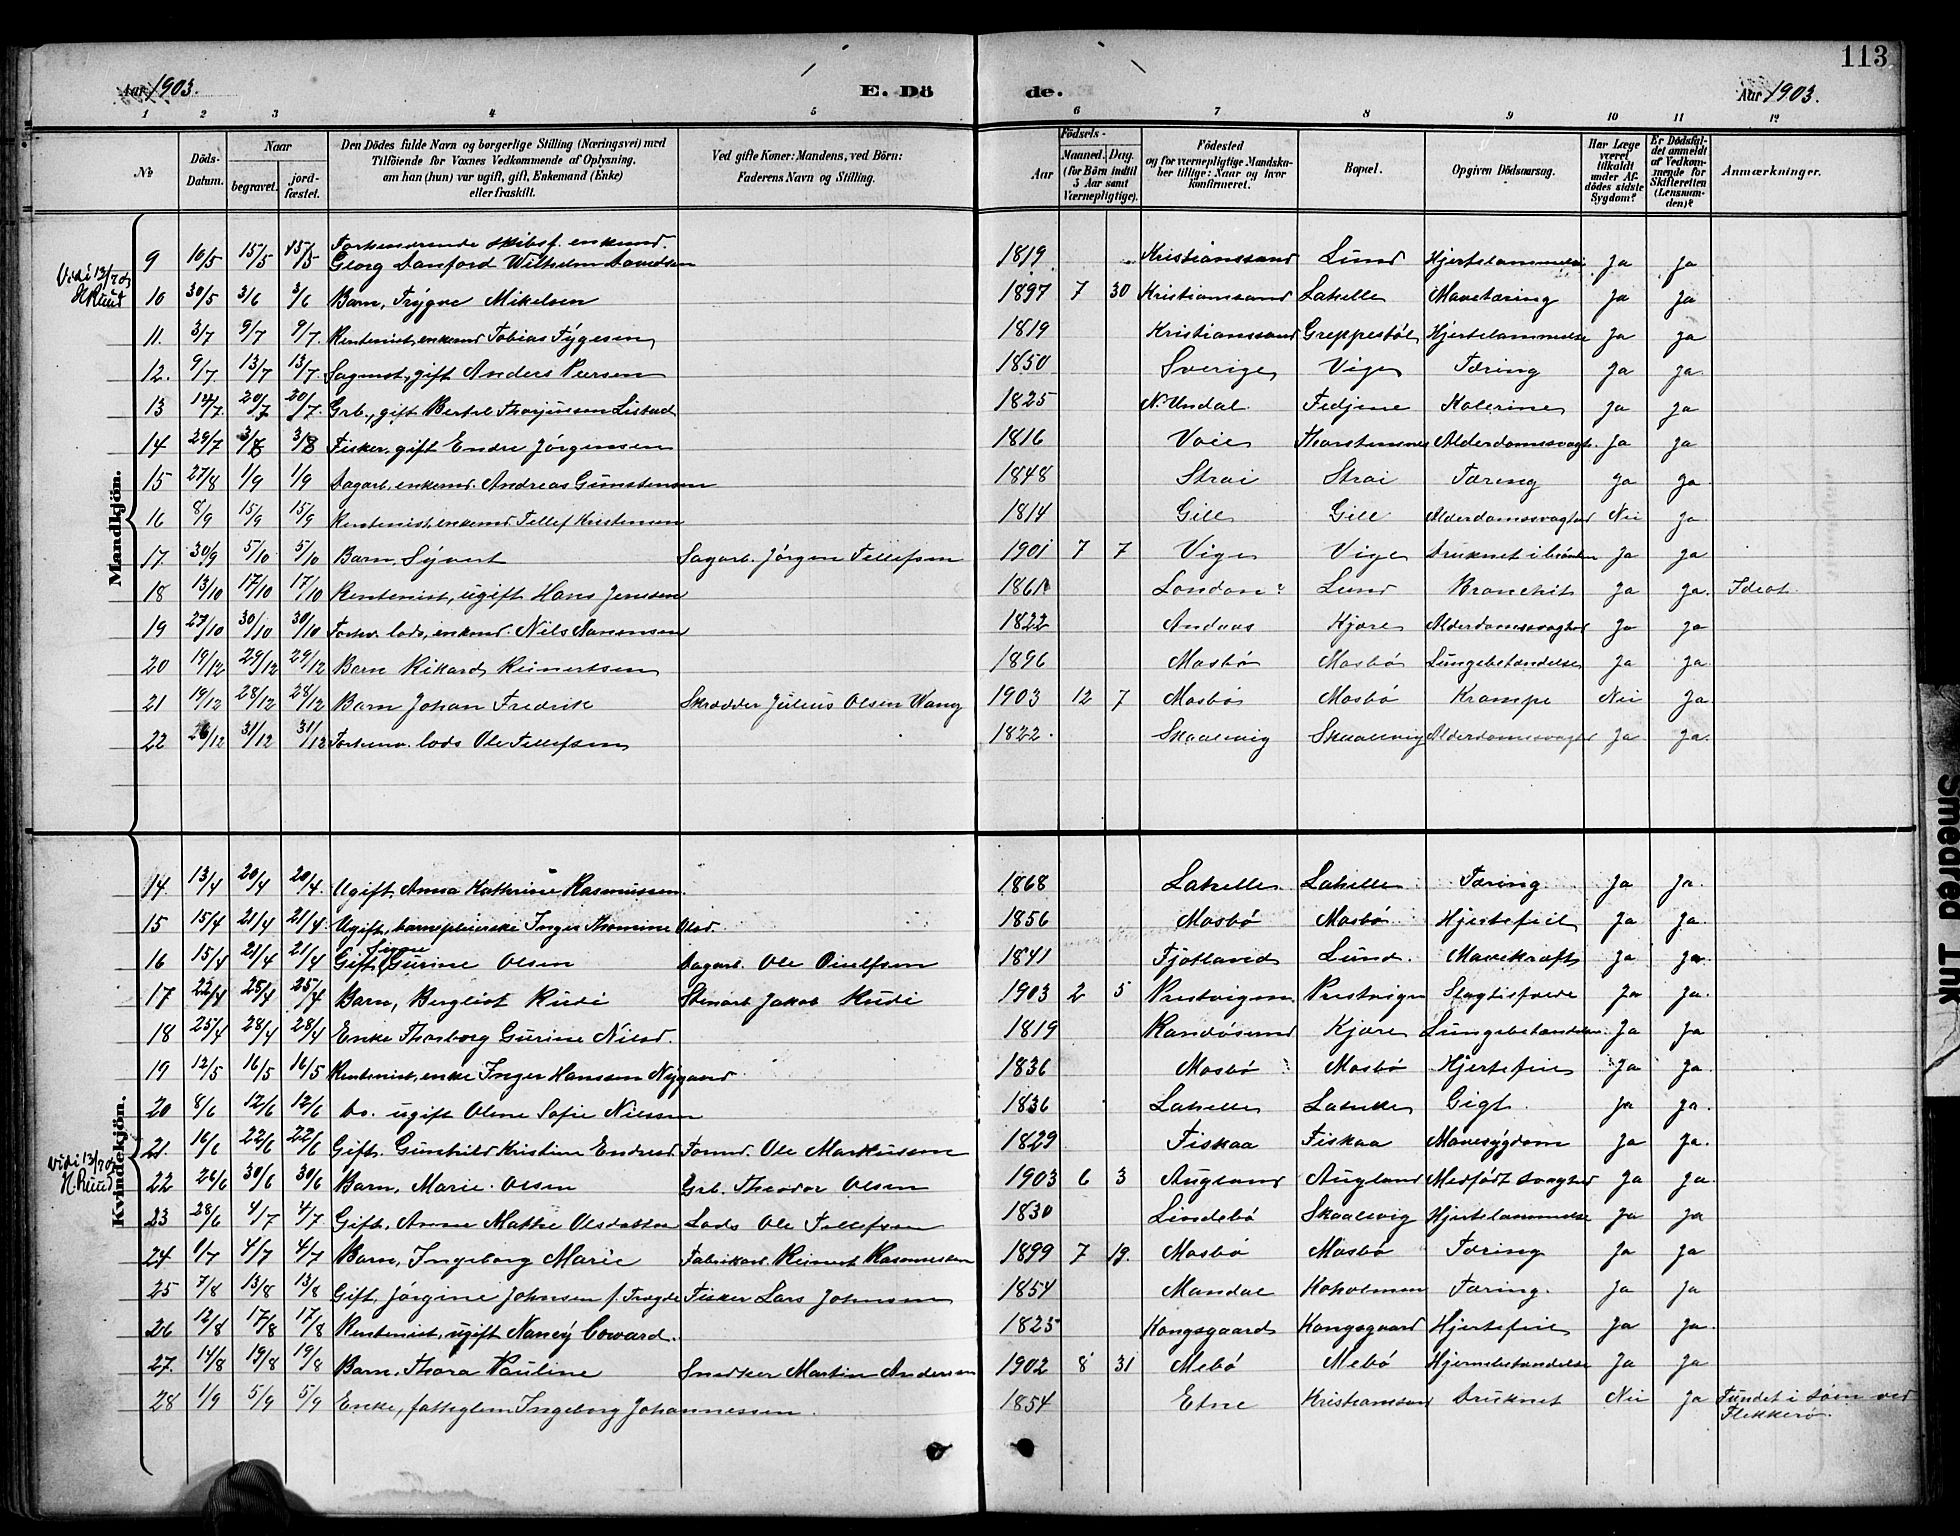 113
Aar 1903. E. Dö de. Aar 1903.
1 2 3 4 5 6 7 8 9 10 11 12
№ Döds-Datum. Naar begravet. jord-fæstet. Den Dödes fulde Navn og borgerlige Stilling (Næringsvei) med Tilföiende for Voxnes Vedkommende af Oplysning, om han (hun) var ugift, gift, Enkemand (Enke) eller fraskilt. Ved gifte Koner: Mandens, ved Börn: Faderens Navn og Stilling. Födsels- Aar Maaned. Dag. (for Börn indtil 5 Aar samt Værnepligtige). Födested og for værnepligtige Mandskaber tillige: Naar og hvor konfirmeret. Bopæl. Opgiven Dödsaarsag. Har Læge været tilkaldt under Afdödes sidste Sygdom? Er Dödsfaldet anmeldt af Vedkommende for Skifteretten (Lensmanden)? Anmærkninger.
Mandkjön.
Vidi 13/7 03 H Ruud
9 10/5 15/5 15/5 Forhenværende skibsf. enkemd. Georg Danford Wilhelm Davidsen 1819 Kristianssand Lund Hjertelammelse Ja Ja
10 30/5 3/6 3/6 Barn, Trygve Mikelsen 1897 7 30 Kristianssand Lahelle Mavetæring Ja Ja
11. 3/7 9/7 9/7. Rentenist, enkemd Tobias Tygesen 1819 Kristianssand Greppestøl Hjertelammelse Ja Ja
12. 9/7. 13/7 13/7. Sagmst., gift Anders Persen 1850 Sverige Vige Tæring Ja Ja
13 12/7. 20/7 20/7. Grb., gift Bertel Thorjussen Listad 1825 N. Undal. Fedjene Kolerine Ja Ja
14 29/7 3/8 3/8 Fisker, gift Endre Jörgensen 1816 Voie Thorstensnes Alderdomssvagh. Ja Ja
15 27/8 1/9 1/9 Dagarb., enkemd. Andreas Gunstensen 1848 Strai Strai Tæring Ja Ja
16 8/9 15/9 15/9 Rentenist, enkemd Tellef Kristensen 1814 Gill Gill Alderdomssvaghed Nei Ja
17. 30/9 5/10 5/10 Barn, Syvert Sagarb. Jörgen Tellefsen 1901 7 7 Vige Vige Druknet i brønden Ja Ja
18 13/10 17/10 17/10 Rentenist, ugift Hans Jenssen 1861? London? Lund Bronchit Ja Ja. Idiot.
19 27/10 30/10 30/10 Forhv. lods, enkemd. Nils Aanonsen 1822 Andaas Kjære Alderdomssvaghed Ja Ja
20 19/12 29/12 29/12 Barn Rikard Reinertsen 1896 Mosbø Mosbø Lungebetændelse Ja Ja
21 19/12 28/12 28/12 Barn Johan Fredrik Skrædder Julius Olsen Wang 1903 12 7 Mosbø Mosbø Krampe Nei Ja
22 26/12 31/12 31/12 Forhenv. lods Ole Tellefsen 1822. Skaalevig Skaalevig Alderdomssvaghed Ja Ja
Kvindekjön.
Vidi 13/7 03 H. Ruud
14. 13/4 20/4 20/4. Ugift, Anna Kathrine Rasmussen. 1868 Lahelle Lahelle Tæring. Ja Ja.
15 15/4 21/4 21/4 Ugift, barnepleierske Inger Thomine Olsd. 1856 Mosbø Mosbø Hjertefeil Ja Ja
16 15/4 21/4 21/4 Gift, Signe Gurine Olsen Dagarb. Ole Oivelfsen 1841 Fjotland Lund. Mavekræft Ja Ja
17 22/4 25/4 25/4 Barn, Bergliot Rudi Stenarb. Jakob Rudi 1903 2 5 Prestvigen Prestvigen Ja Ja.
18 25/4 28/4 28/4 Enke Thorborg Gurine Nilsd. 1819 Randøsund Kjære Lungebetændelse. Ja Ja
19 12/5 16/5 16/5 Rentenist, enke Inger Hanssen Nygaard 1836 Mosbø Mosbø Hjertefeil Ja Ja
20 8/6 12/6 12/6 Do. ugift Oline Sofie Nilssen 1836 Lahelle Lahelle Gigt. Ja Ja.
21. 16/6 22/6 22/6 Gift. Gunhild Kristine Endresd. Formd. Ole Markussen 1829 Fiskaa Fiskaa Mavesygdom Ja Ja.
22 26/6 30/6 30/6 Barn, Marie Olsen Grb. Theodor Olsen 1903 6 3 Augland Augland Medfødt svaghed Ja Ja.
23 28/6 4/7 4/7 Gift, Anne Mathie Olsdatter Lods Ole Tellefsen 1830 Lindebø Skaalevig Hjertelammelse Ja Ja
24 1/7 4/7 4/7 Barn, Ingeborg Marie Fabrikarb. Reinert Rasmussen 1899 7 19. Mosbø Mosbø Tæring Ja Ja
25 7/8 13/8 13/8 Gift, Jörgine Johnsen f. Trygde Fisker Lars Johnsen 1854 Mandal Koholmen Tæring. Ja Ja
26 12/8 17/8 17/8 Rentenist, ugift Nancy Coward. 1825 Kongsgaard Kongsgaard Hjertefeil Ja Ja.
27. 14/8 19/8 19/8 Barn, Thora Pauline Snedker Martin Andersen 1902 8 31 Mebø Mebø Hjernebetændelse Ja Ja
28 1/9 5/9 5/9 Enke, fattiglem Ingeborg Johannessen. 1854 Etne Kristianssand Druknet Nei Ja Fundet i søen ved Flekkerø.
Smeared Ink